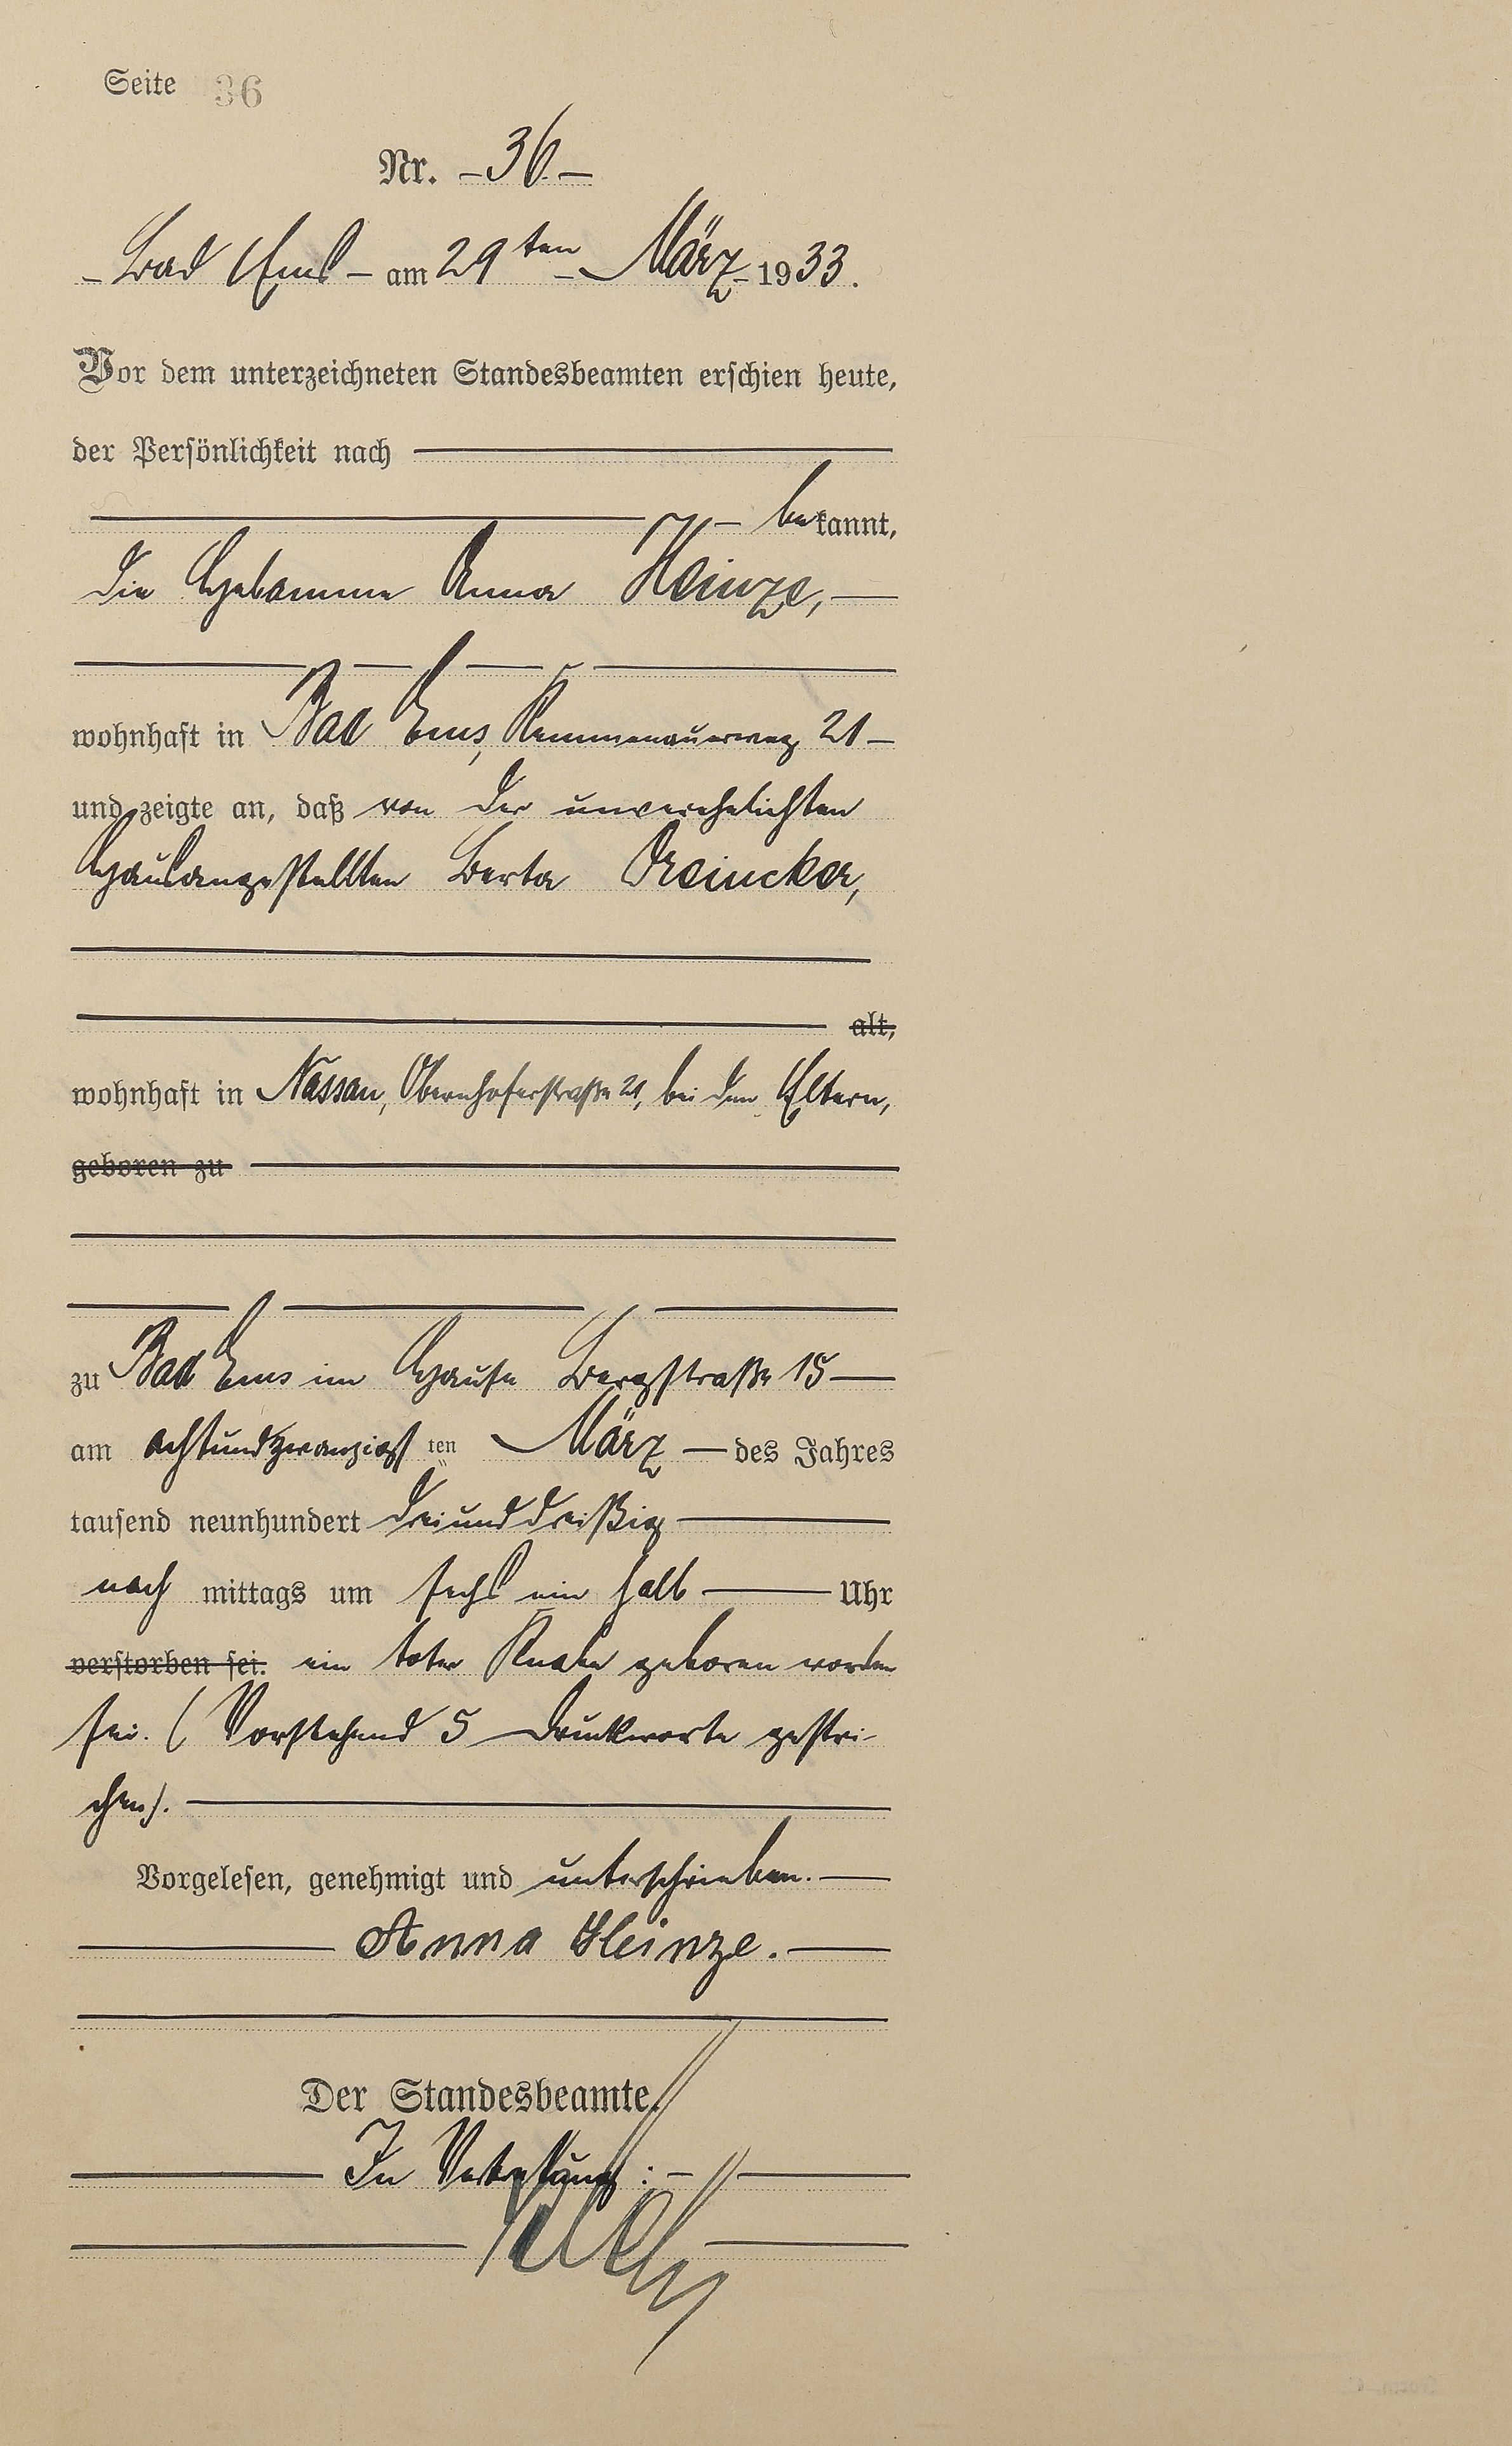 Seite 36
Nr. – 36 –
– Bad Ems – am 29ten – März 1933.
Vor dem unterzeichneten Standesbeamten erschien heute,
der Persönlichkeit nach
bekannt,
die Hebamme Anna Heinze,
wohnhaft in Bad Ems, Kemmenauerweg 21 –
und zeigte an, daß von der unverehelichten
Hausangestellten Berta
alt,
wohnhaft in Nassau, Obernhoferstraße 21, bei den Eltern,
geboren zu
zu Bad Ems im Hause Bergstraße 15 –
am achtundzwanzigsten März – des Jahres
tausend neunhundert dreiunddreißig
nachmittags um sechs ein halb Uhr
verstorben sei. ein toter Knabe geboren worden
sei. (Vorstehend 5 Druckworte gestri-
chen).
Vorgelesen, genehmigt und unterschrieben.
Anna Heinze.
Der Standesbeamte.
In Vertretung: –